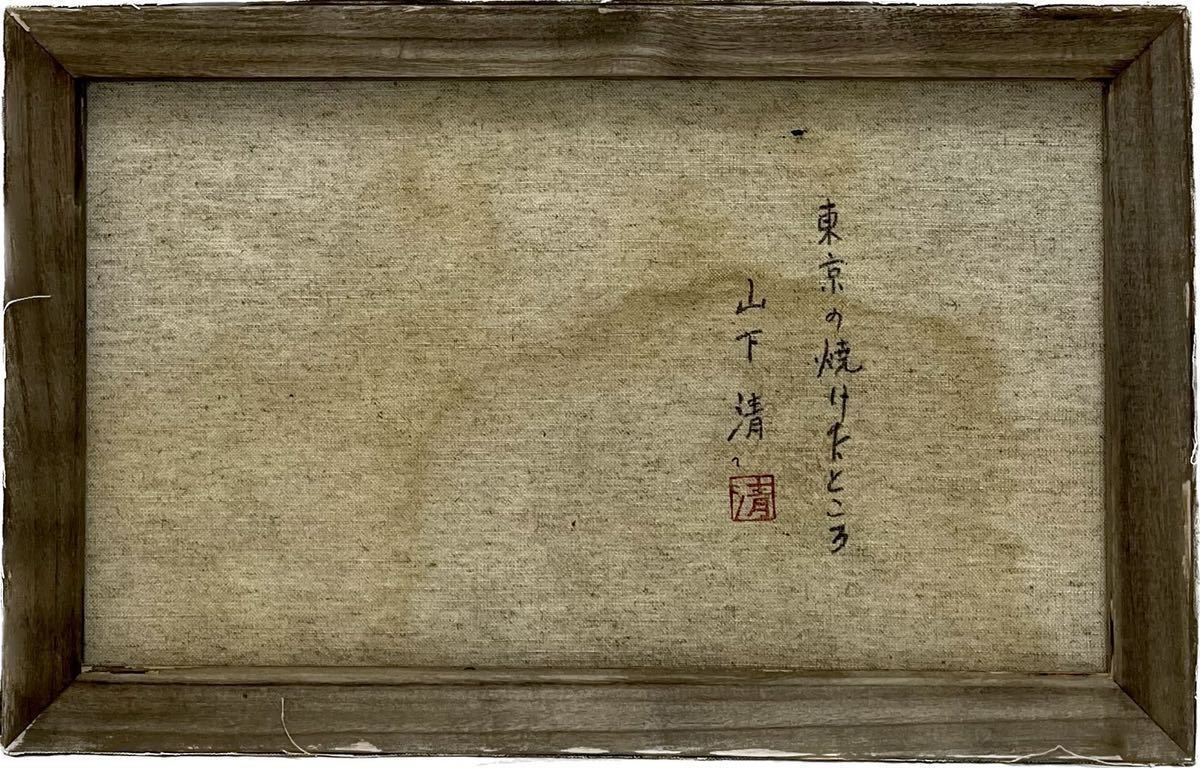 東京の焼けたところ
山下清
清